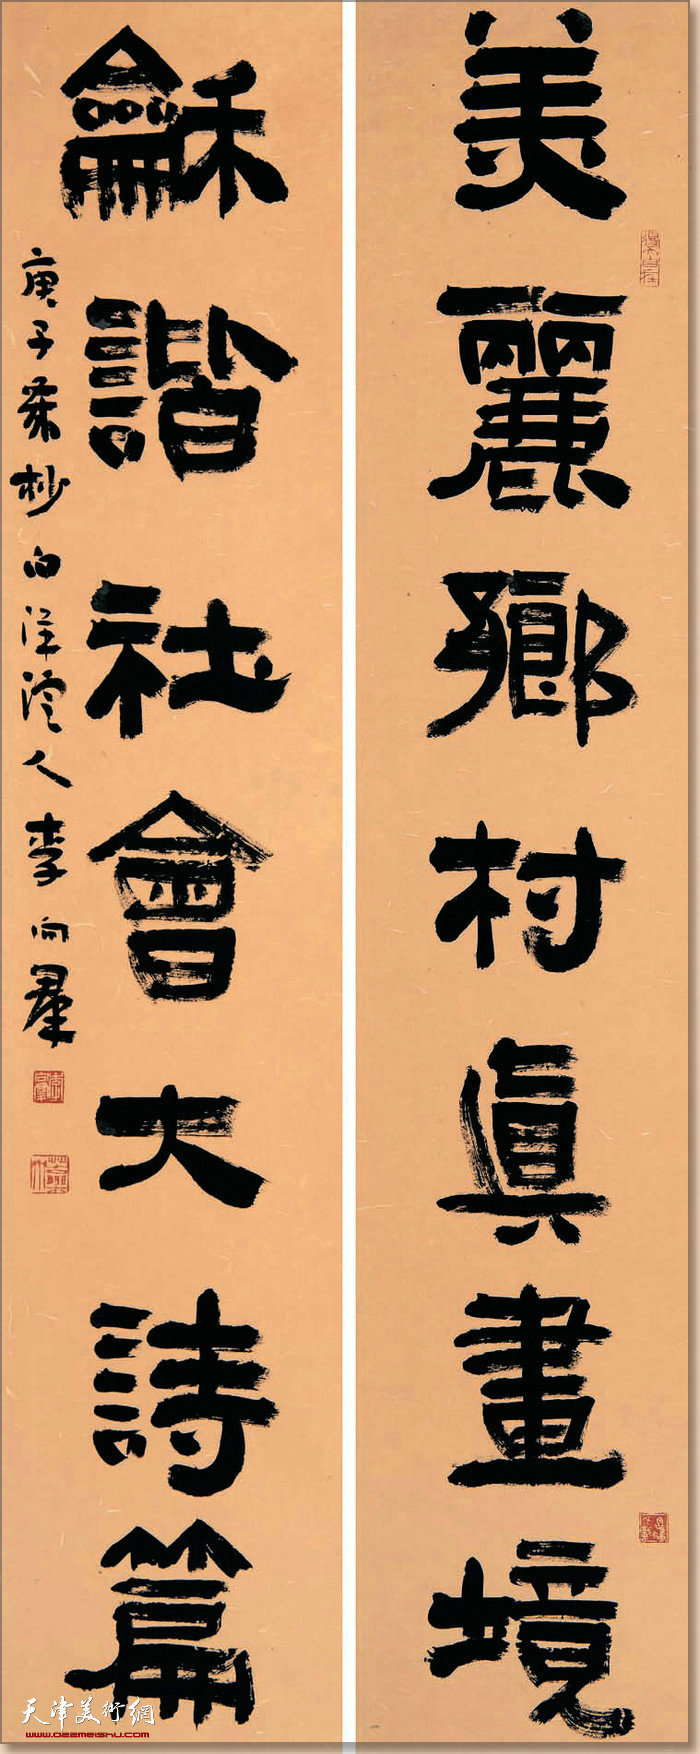 美麗鄉村真畫境
龢諧社會大詩篇
庚子蕤杪白洋淀人李向羣
天津美術網
www.022meishu.com